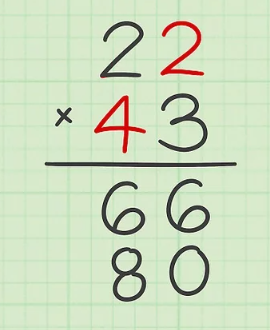 22
× 43
66
80